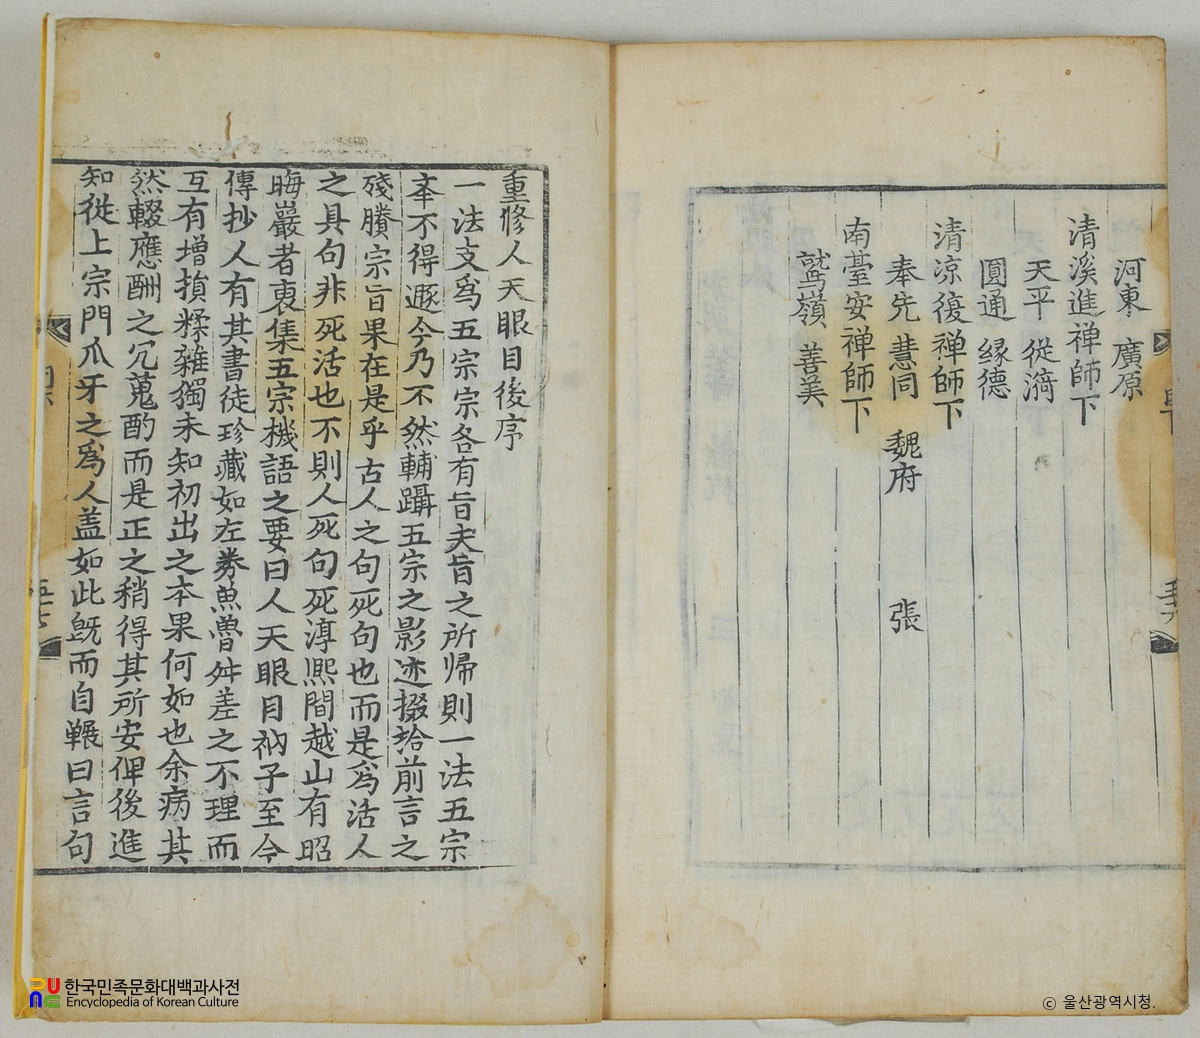 河東 廣原
清溪進禅師下
天平 從漪
圓通 緣德
清凉復禅師下
奉先 慧同 魏府 張
南臺安禅師下
鷲嶺 善美
重修人天眼目後序
一法支爲五宗宗各有旨夫旨之所帰則一法五宗
奉不得遯今乃不然輔躡五宗之影迹掇拾前言之
殘賸宗旨果在是乎古人之句死句也而是爲活人
之具句非死活也不則人死句死淳熈間越山有昭
晦巖者裒集五宗機語之要曰人天眼目衲子至今
傳抄人有其書徒珍藏如左券魚魯舛差之不理而
互有增損糅雜獨未知初出之本果何如也余病其
然輟應酬之冗蒐酌而是正之稍得其所安俾後進
知從上宗門爪牙之爲人盖如此旣而自囅曰言句
한국민족문화대백과사전
Encyclopedia of Korean Culture
ⓒ 울산광역시청.